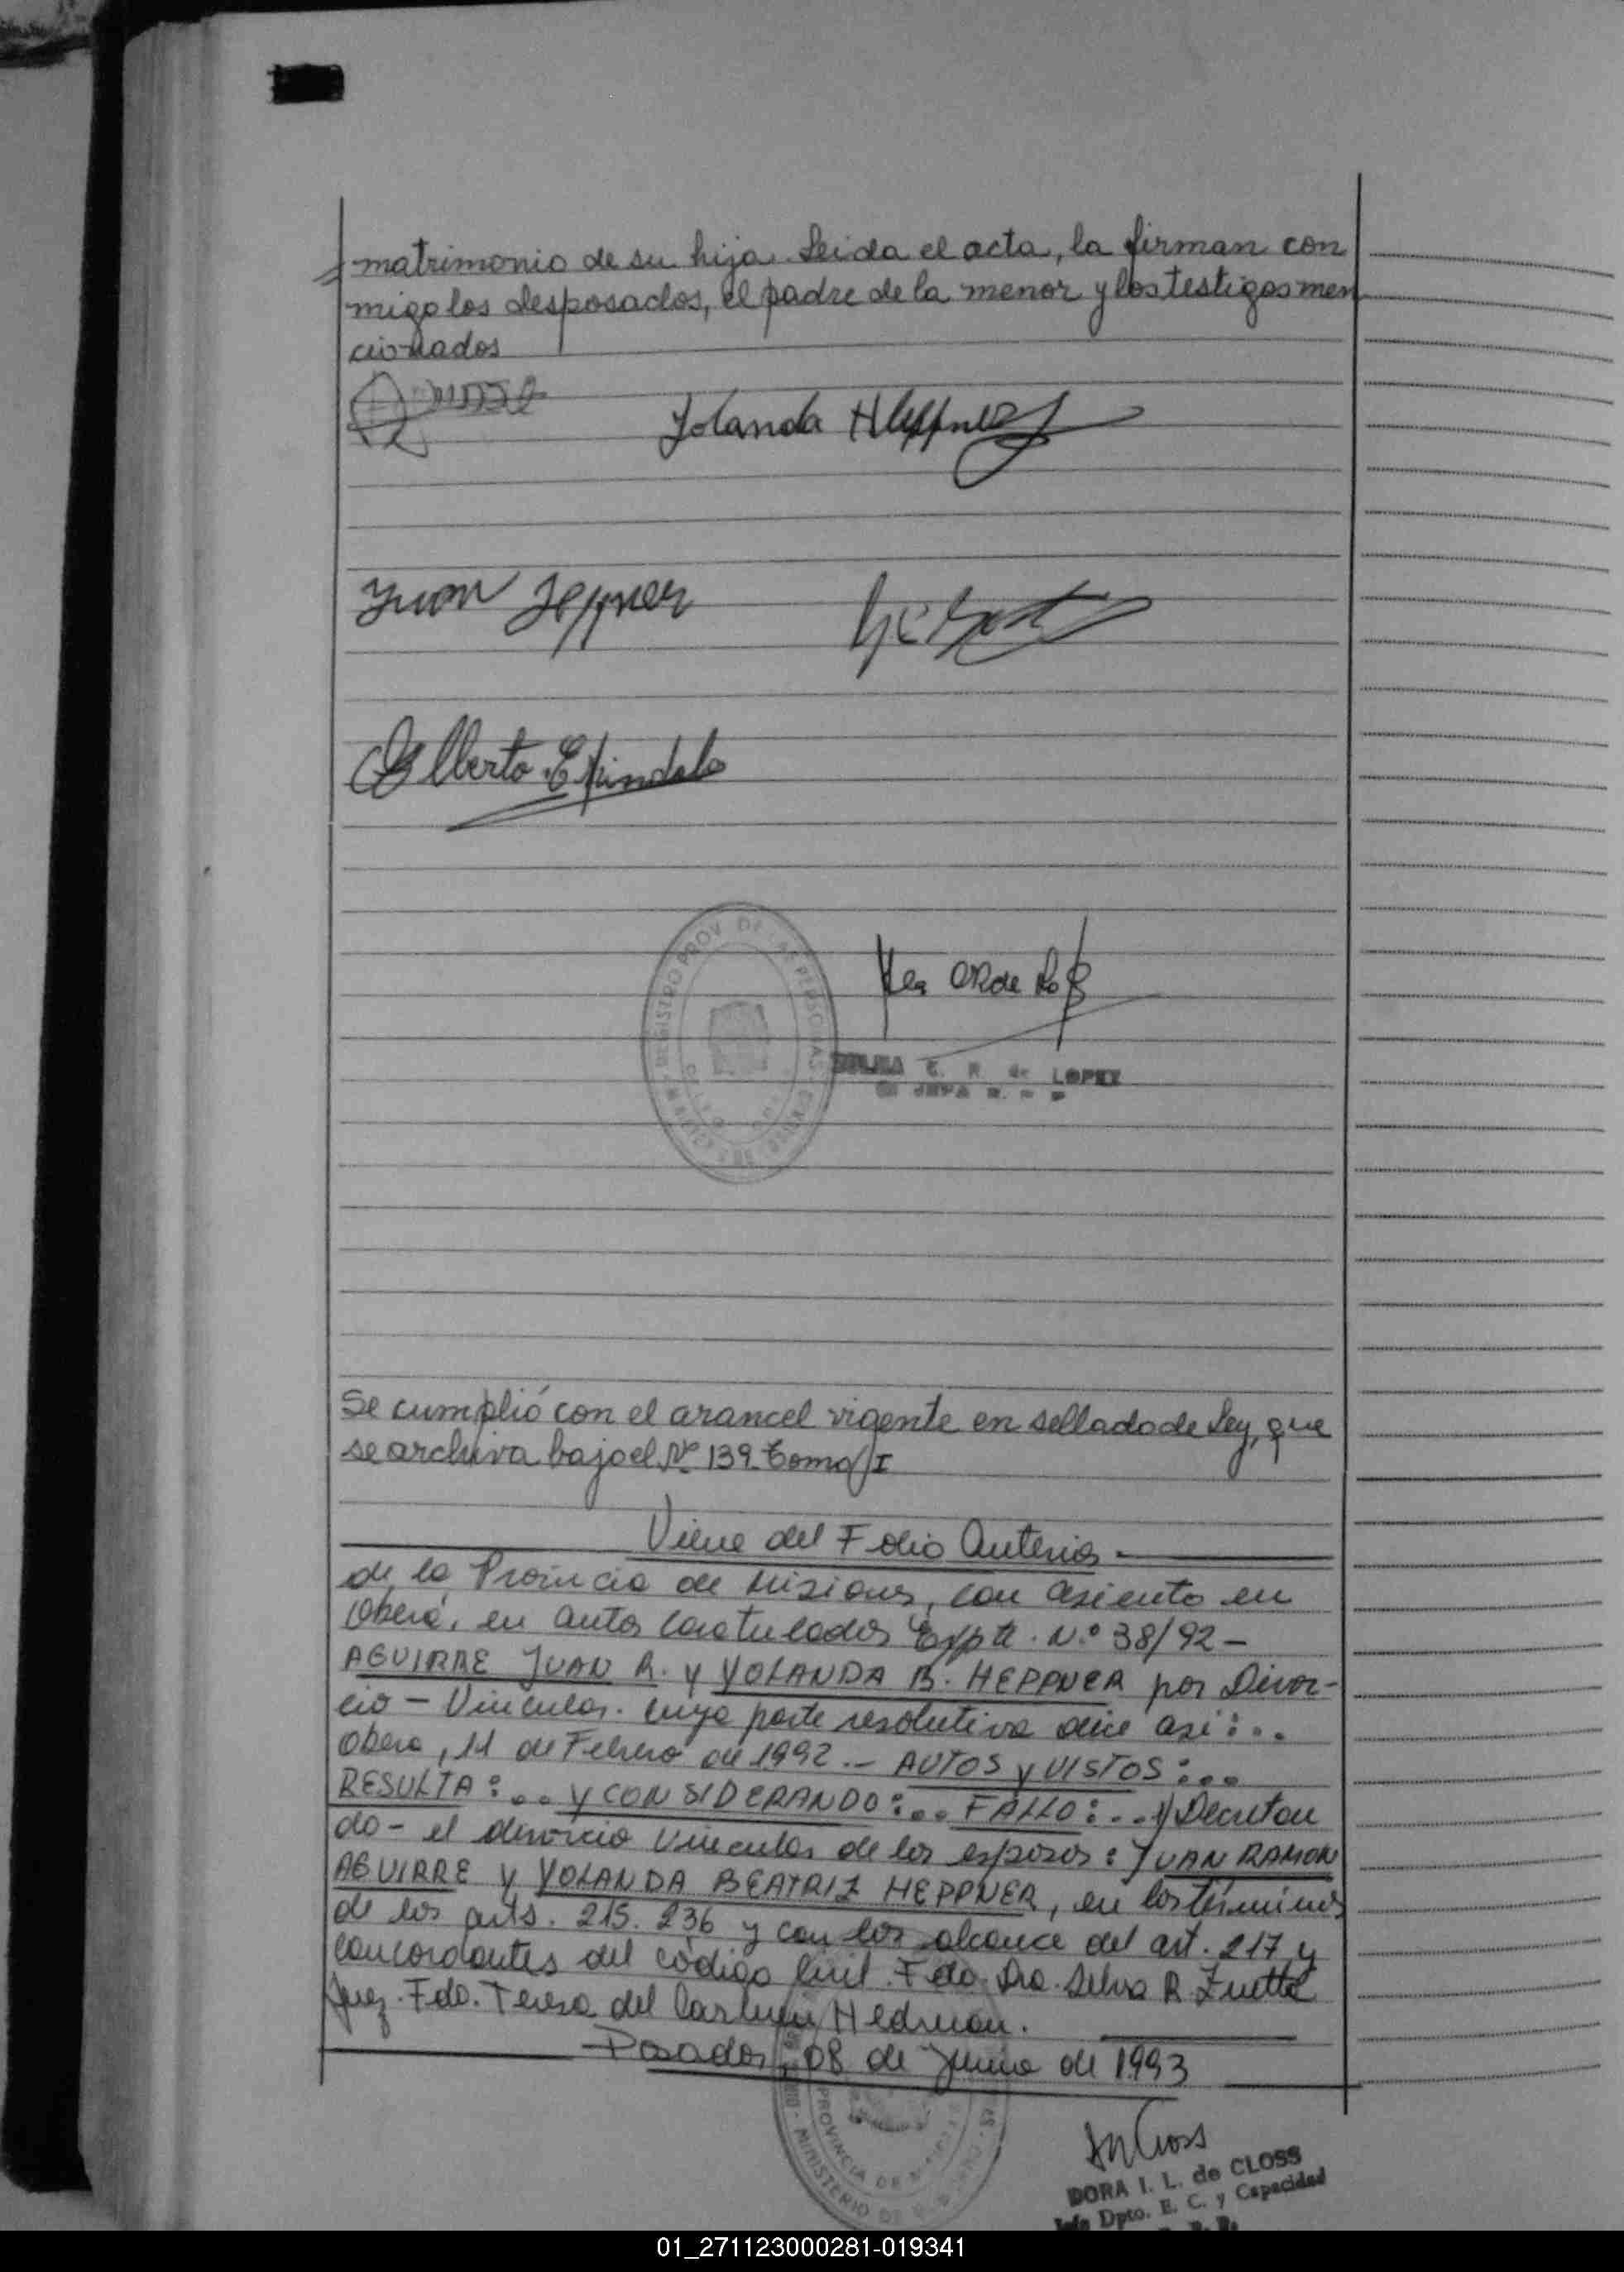 matrimonio de su hija. Leida el acta, la firman con
migo los desposados, el padre de la menor y los testigos men
cionados
Yolanda Heppner
Juan Heppner
Alberto Espindola
REGISTRO PROV. DE LAS PERSONAS
E. R. de LOPEZ
JEFA
Se cumplió con el arancel vigente en sellado de Ley, que
se archiva bajo el Nº 139 Tomo I
Viene del Folio Anterior
de la Provincia de Misiones, con asiento en
Oberá, en autos caratulados Expte. N.º 38/92 -
AGUIRRE JUAN R. y YOLANDA B. HEPPNER por Divor-
cio - Vincular. Cuya parte resolutiva dice asi:...
Obera, 11 de Febrero de 1992.- AUTOS y VISTOS:...
RESULTA:... y CONSIDERANDO:... FALLO:... 1) Decretan
do - el divorcio vincular de los esposos: JUAN RAMON
AGUIRRE y YOLANDA BEATRIZ HEPPNER, en los términos
de los arts. 215. 236 y con los alcance del art. 217 y
concordantes del código Civil. Fdo. Dra. Selva R. Zuetta
Juez. Fdo. Teresa del Carmen Hedman.
Posadas, 08 de Junio de 1993
PROVINCIA DE
MINISTERIO DE
DORA I. L. de CLOSS
Jefa Dpto. E. C. y Capacidad
01_271123000281-019341